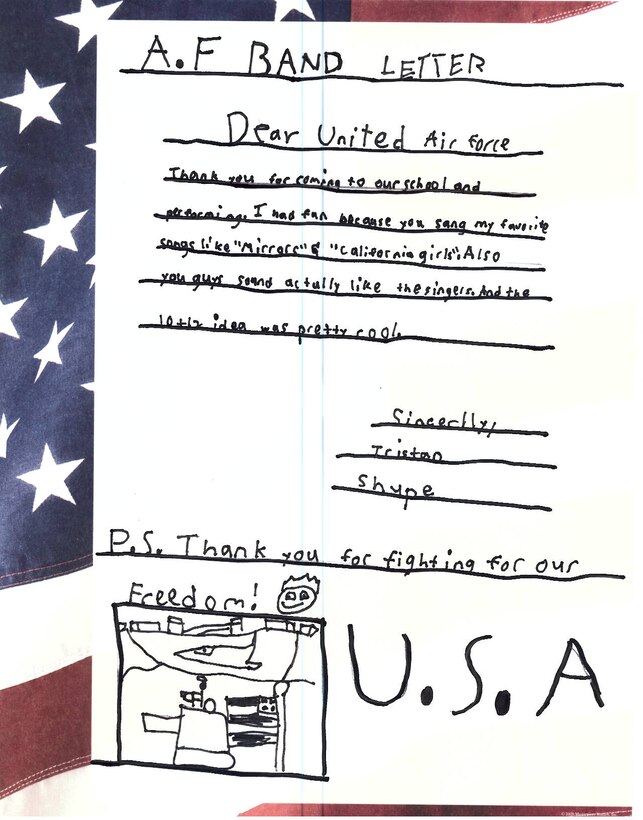 A.F BAND LETTER
Dear United Air Force
Thank you for coming to our school and
pereorming. I had fun because you sang my favorite
songs like "Mirrors" & "California girls". Also
you guys sound actully like the singers. And the
10+12 idea was pretty cool.
Sincerlly,
Tristan
Shype
P.S. Thank you for fighting for our
Freedom!
U.S.A